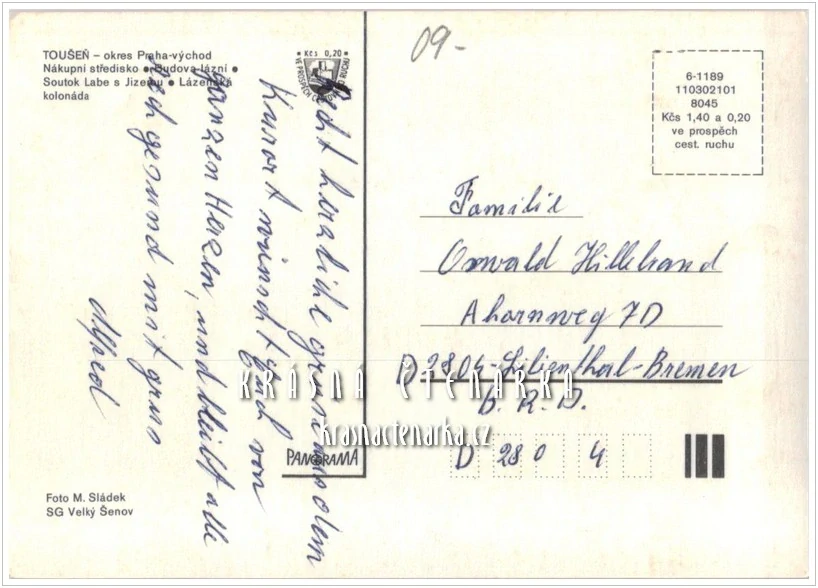 09.-
TOUŠEŇ – okres Praha-východ
Nákupní středisko • Budova lázní •
Soutok Labe s Jizerou • Lázeňská
kolonáda
• Kčs 0,20 •
VE PROSPĚCH CEST. RUCHU
6-1189
110302101
8045
Kčs 1,40 a 0,20
ve prospěch
cest. ruchu
Recht herzliche grüsse aus dem
Kurort wünscht Euch von
ganzen Herzen, und bleibt alle
recht gesund mit gruss
Alfred
Familie
Oswald Hillebrand
Ahornweg 7D
D-2804-Lilienthal-Bremen
B.R.D.
D 28 0 4
KRÁSNÁ ČTENÁŘKA
krasnactenarka.cz
PANORAMA
Foto M. Sládek
SG Velký Šenov